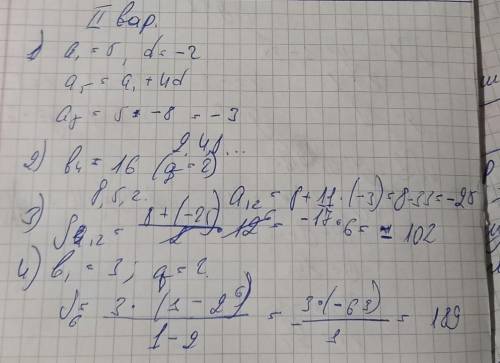 II вар.
1) a₁ = 5, d = -2
a₅ = a₁ + 4d
a₅ = 5 - 8 = -3
2, 4, 8, ...
2) b₄ = 16 (q = 2)
8, 5, 2. a₁₂ = 8 + 11 · (-3) = 8-33 = -25
3) S₁₂ = 8 + (-25) / 2 · 12 = -17 · 6 = -102
4) b₁ = 3; q = 2.
S₆ = 3 · (1 - 2⁶) / 1 - 2 = - 3 · (-63) / 1 = 189